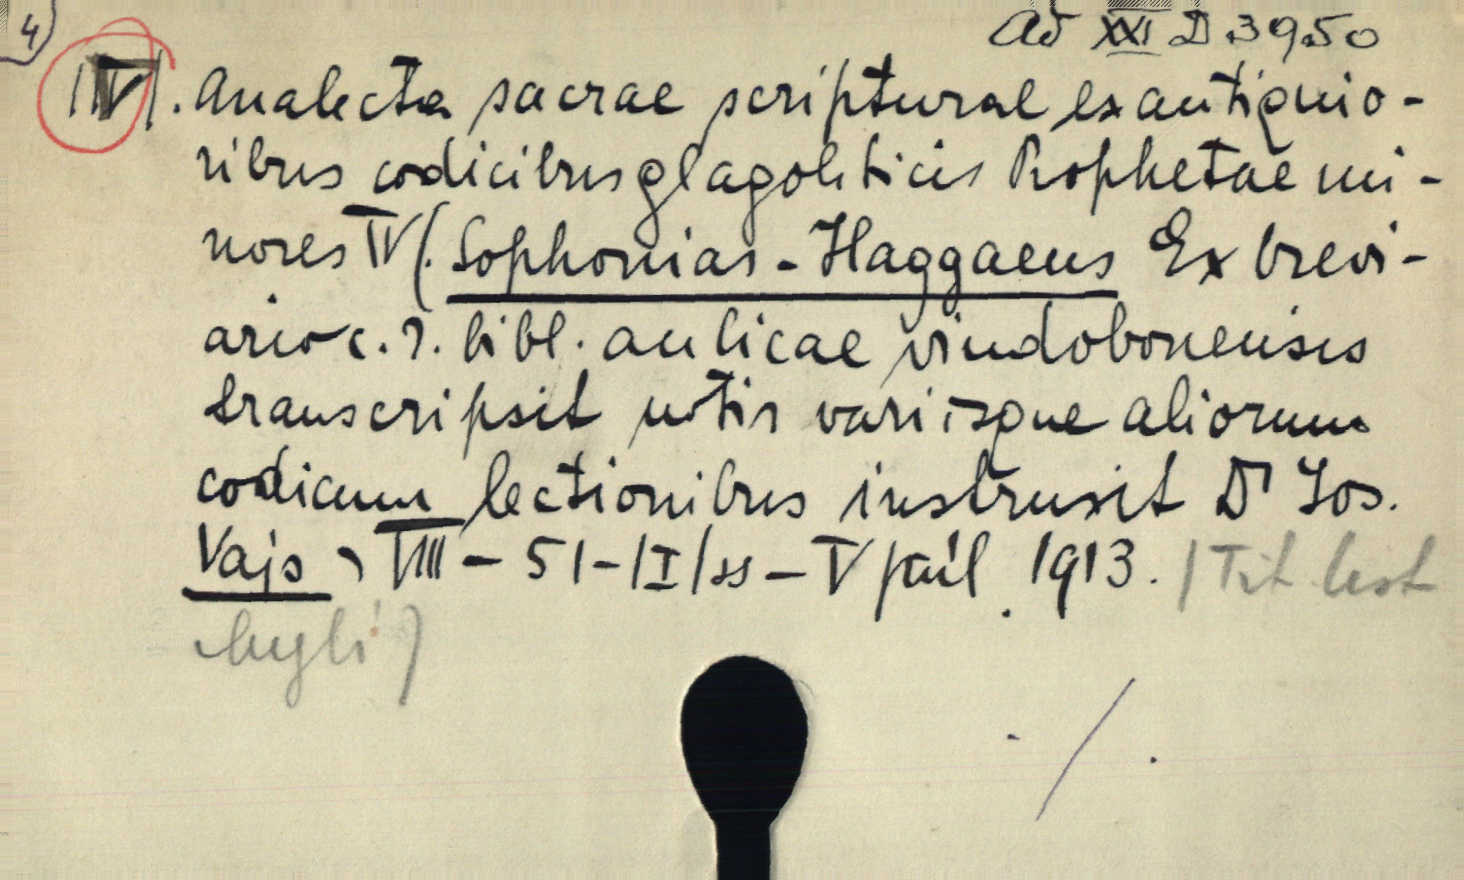 4
Ad XXI D 3950
/IV/. Analecta sacrae scripturae ex antiquio-
ribus codicibus glagoliticis Prophetae mi-
nores IV (. Sophonias - Haggaeus Ex brevi-
ario c. r. bibl. aulicae vindobonensis
transcripsit notis variisque aliorum
codicum lectionibus instruxit Dr Jos.
Vajs, VIII - 51 - /I/ss - V příl. 1913. /Tit. list
chybí/
./.